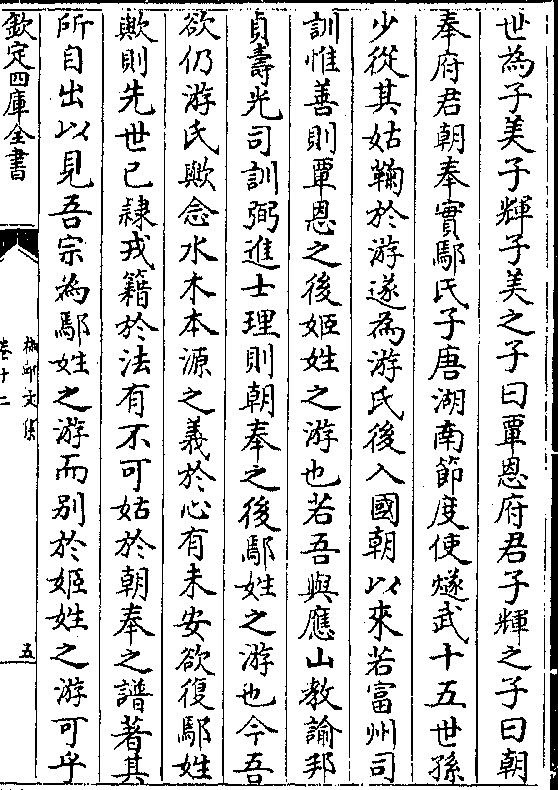 世為子美子輝子美之子曰覃恩府君子輝之子曰朝
奉府君朝奉實鄢氏子唐湖南節度使燧武十五世孫
少從其姑鞠於游遂為游氏後入國朝以來若富州司
訓惟善則覃恩之後姬姓之游也若吾與應山教諭邦
貞壽光司訓弼進士理則朝奉之後鄢姓之游也今吾
欲仍游氏歟念水木本源之義於心有未安欲復鄢姓
歟則先世已隷戎籍於法有不可姑於朝奉之譜著其
所自出以見吾宗為鄢姓之游而别於姬姓之游可乎
欽定四庫全書
文集
卷十二
五